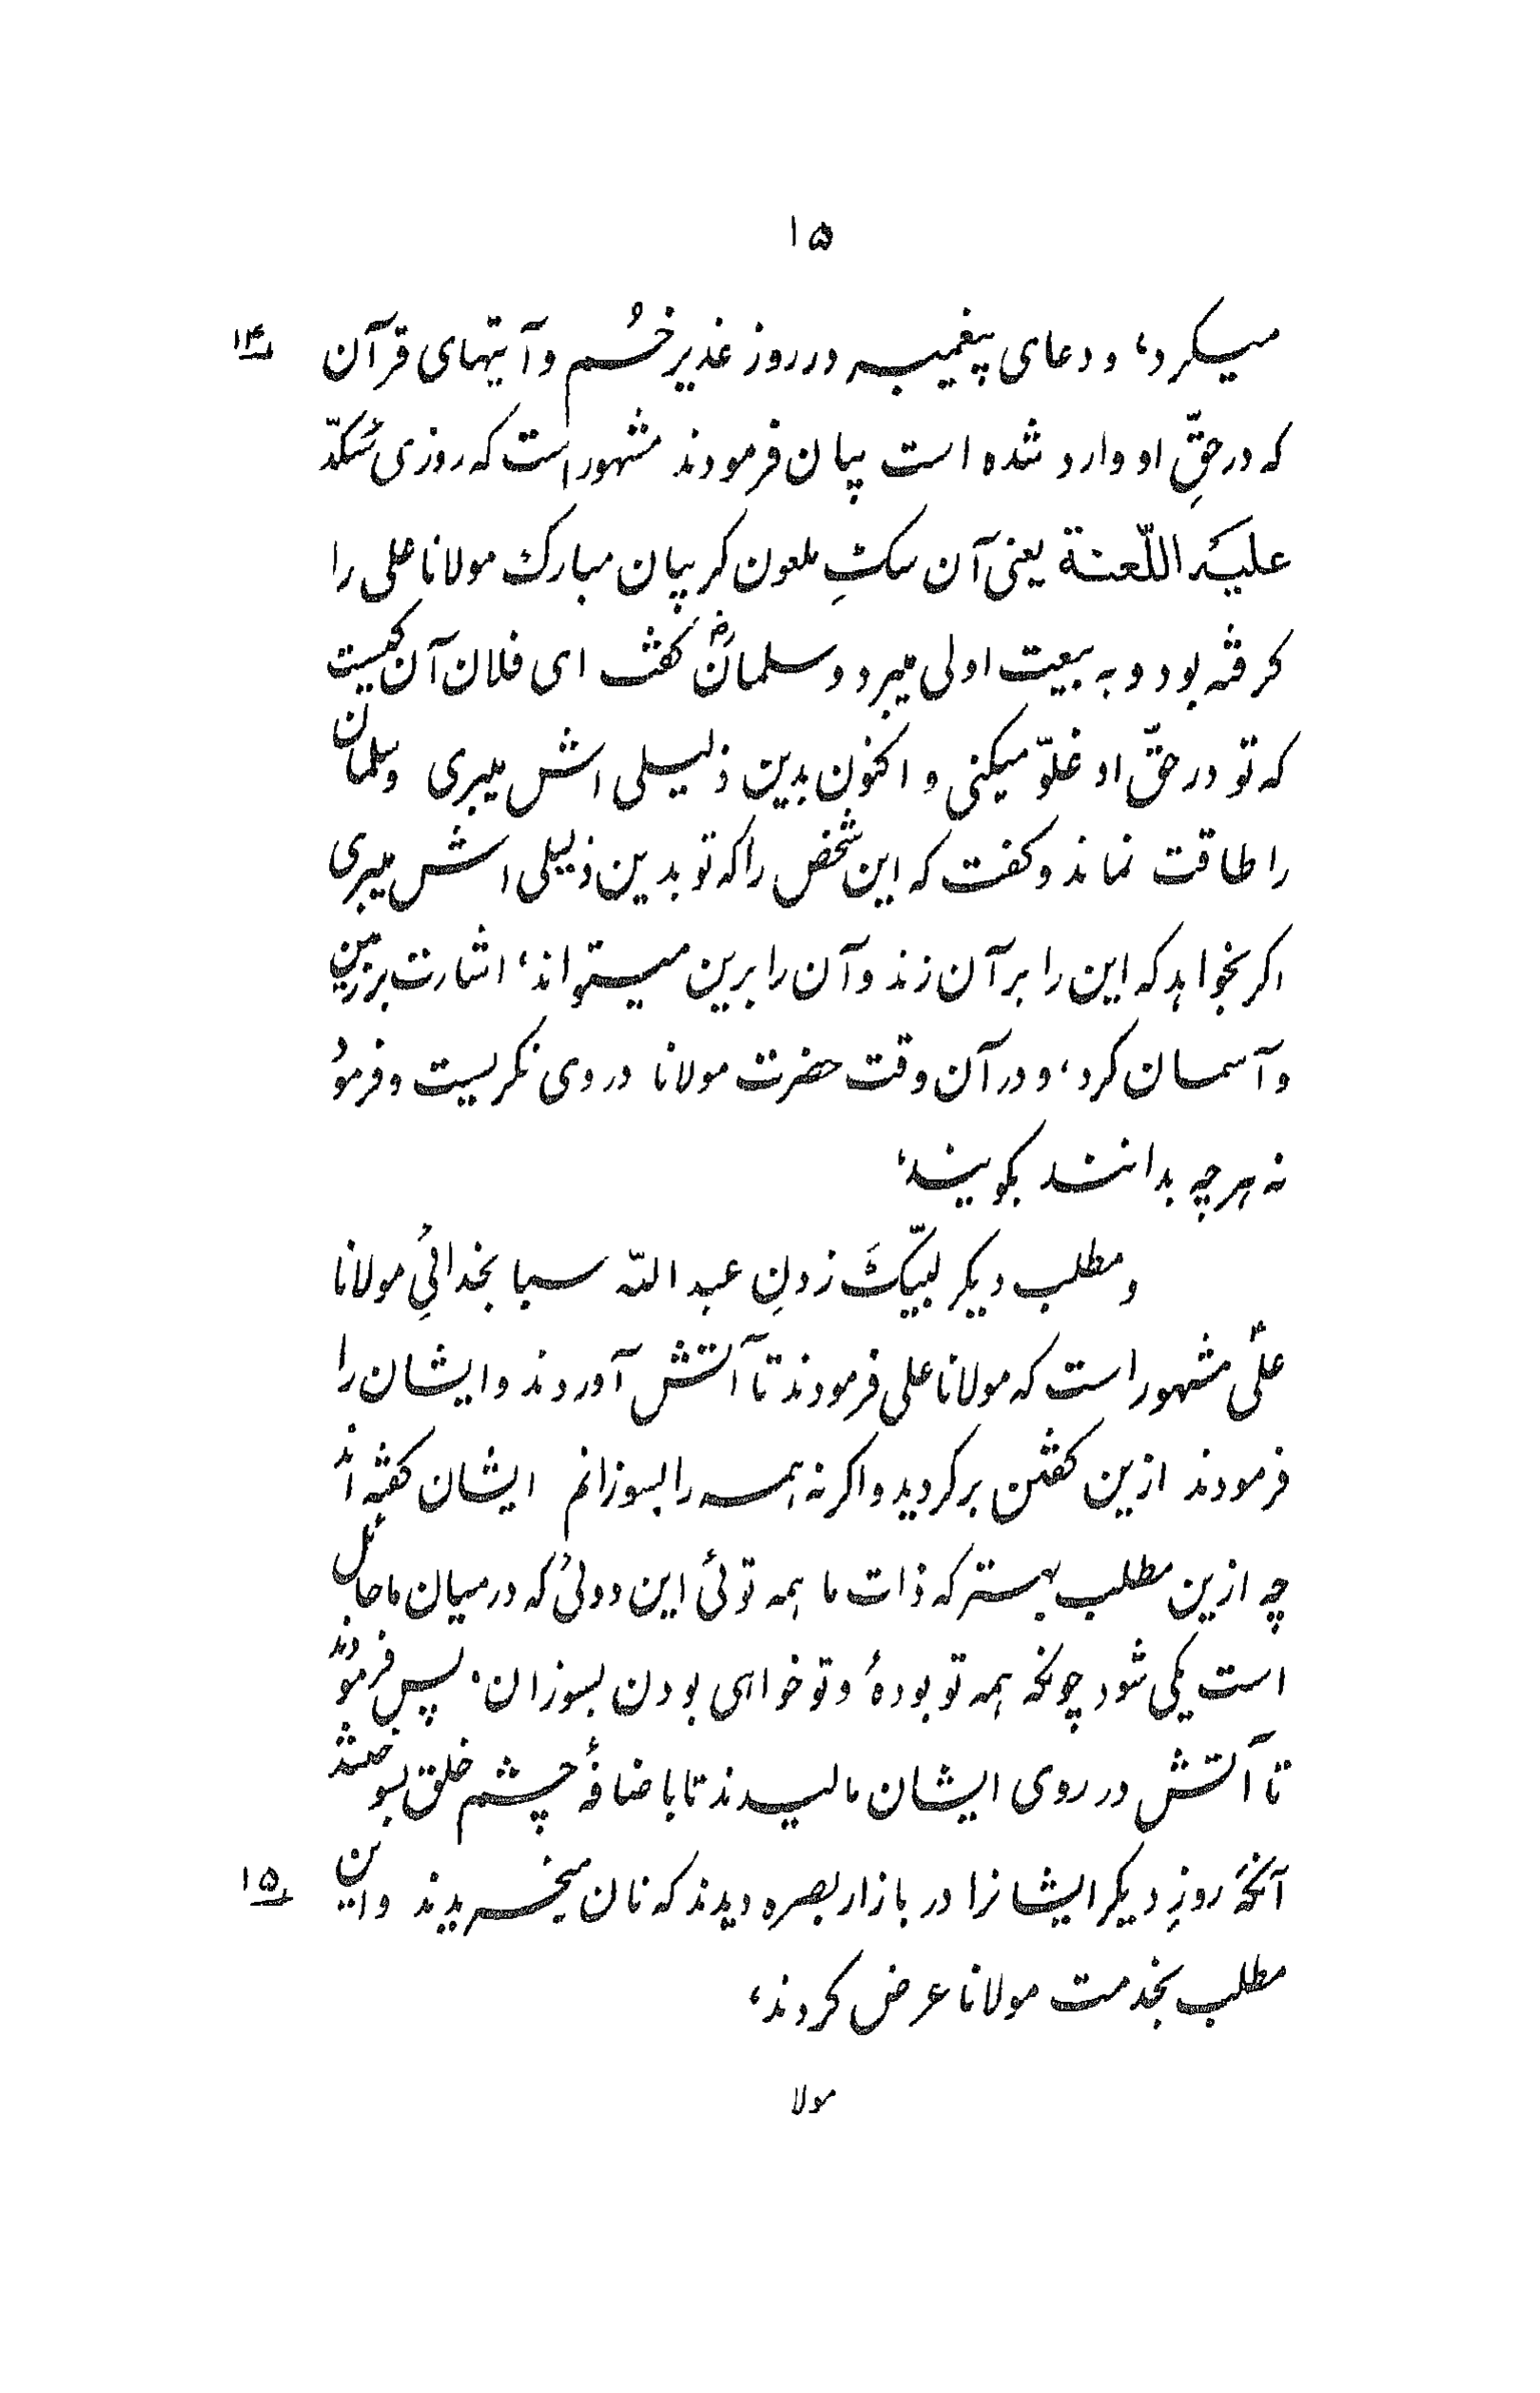 ۱۵
میکرد، و دعای پیغمبر در روز غدیر خُم و آیتهای قرآن ۱۴
که در حقِّ او وارد شده است پیان فرمودند مشهور است که روزی سُکدّ
علیه اللّعنة یعنی آن سکِ ملعون کریبان مبارک مولانا علی را
کرفته بود و به بیعت اولی میبرد و سلمانؓ کفت ای فلان آن کیست
که تو در حقّ او غلوّ میکنی و اکنون بدین ذلیلی اش میبری و سلمان
را طاقت نماند و کفت که این شخص را که تو بدین ذلیلی اش میبری
اکر بخواهد که این را بر آن زند و آن را برین میتواند، اشارت بر زمین
و آسمان کرد، و در آن وقت حضرت مولانا در وی نکریست و فرمود
نه هر چه بدانند بکویند،
و مطلب دیکر لبّیکَ زدنِ عبد اللّه سبا بخدائیِ مولانا
علیؑ مشهور است که مولانا علی فرمودند تا آتش آوردند و ایشان را
فرمودند ازین کفتن برکردید و اکر نه همه را بسوزانم ایشان کفته اند
چه ازین مطلب بهتر که ذات ما همه توئی این دوئی که در میان ما حائل
است یکی شود چونکه همه تو بودهٔ و تو خواهی بودن بسوزان. پس فرمودند
تا آتش در روی ایشان مالیدند تا باضافهٔ چشم خلق بسوختند
آنکه روزِ دیکر ایشانرا در بازار بصره دیدند که نان میخریدند و این ۱۵
مطلب بخدمت مولانا عرض کردند،
مولا